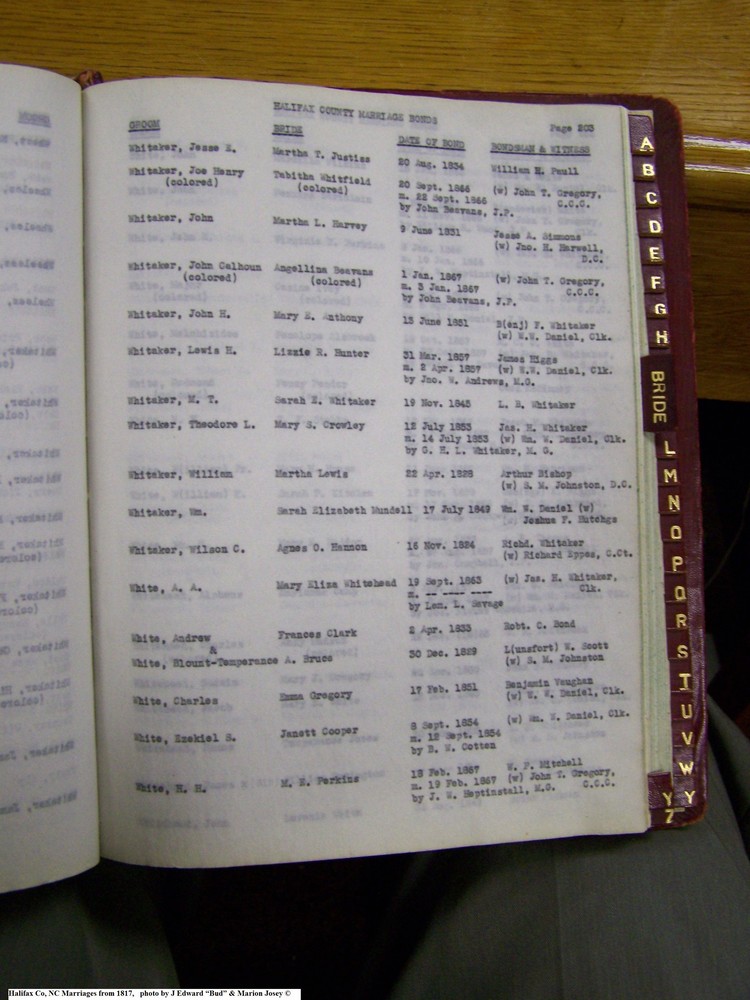 HALIFAX COUNTY MARRIAGE BONDS
Page 203
GROOM BRIDE DATE OF BOND BONDSMAN & WITNESS
Whitaker, Jesse E. Martha T. Justiss 20 Aug. 1834 William H. Paull
Whitaker, Joe Henry Tabitha Whitfield 20 Sept. 1866 (w) John T. Gregory,
(colored) (colored) m. 22 Sept. 1866 C.C.C.
by John Beavans, J.P.
Whitaker, John Martha L. Harvey 9 June 1831 Jesse A. Simmons
(w) Jno. H. Harwell,
D.C.
Whitaker, John Calhoun Angellina Beavans 1 Jan. 1867 (w) John T. Gregory,
(colored) (colored) m. 3 Jan. 1867 C.C.C.
by John Beavans, J.P.
Whitaker, John H. Mary E. Anthony 13 June 1851 B(enj) F. Whitaker
(w) W.W. Daniel, Clk.
Whitaker, Lewis H. Lizzie R. Hunter 31 Mar. 1857 James Higgs
m. 2 Apr. 1857 (w) W.W. Daniel, Clk.
by Jno. W. Andrews, M.G.
Whitaker, M. T. Sarah E. Whitaker 19 Nov. 1845 L. B. Whitaker
Whitaker, Theodore L. Mary S. Crowley 12 July 1853 Jas. H. Whitaker
m. 14 July 1853 (w) Wm. W. Daniel, Clk.
by G. H. L. Whitaker, M. G.
Whitaker, William Martha Lewis 22 Apr. 1828 Arthur Bishop
(w) S. M. Johnston, D.C.
Whitaker, Wm. Sarah Elizabeth Mundell 17 July 1849 Wm. W. Daniel (w)
Joshua F. Hutchgs
Whitaker, Wilson C. Agnes O. Hannon 16 Nov. 1824 Richd. Whitaker
(w) Richard Eppes, C.Ct.
White, A. A. Mary Eliza Whitehead 19 Sept. 1863 (w) Jas. H. Whitaker,
m. -- ---- ---- Clk.
by Lem. L. Savage
White, Andrew Frances Clark 2 Apr. 1833 Robt. C. Bond
&
White, Blount-Temperance A. Bruce 30 Dec. 1829 L(unsfort) W. Scott
(w) S. M. Johnston
White, Charles Emma Gregory 17 Feb. 1851 Benjamin Vaughan
(w) W. W. Daniel, Clk.
White, Ezekiel S. Janett Cooper 8 Sept. 1854 (w) Wm. W. Daniel, Clk.
m. 12 Sept. 1854
by B. W. Cotten
White, H. H. M. E. Perkins 18 Feb. 1867 W. P. Mitchell
m. 19 Feb. 1867 (w) John T. Gregory,
by J. W. Heptinstall, M.G. C.C.C.
A
B
C
D
E
F
G
H
BRIDE
L
M
N
O
P
Q
R
S
T
U
V
W
Y
Y
Z
Halifax Co, NC Marriages from 1817, photo by J Edward “Bud” & Marion Josey ©